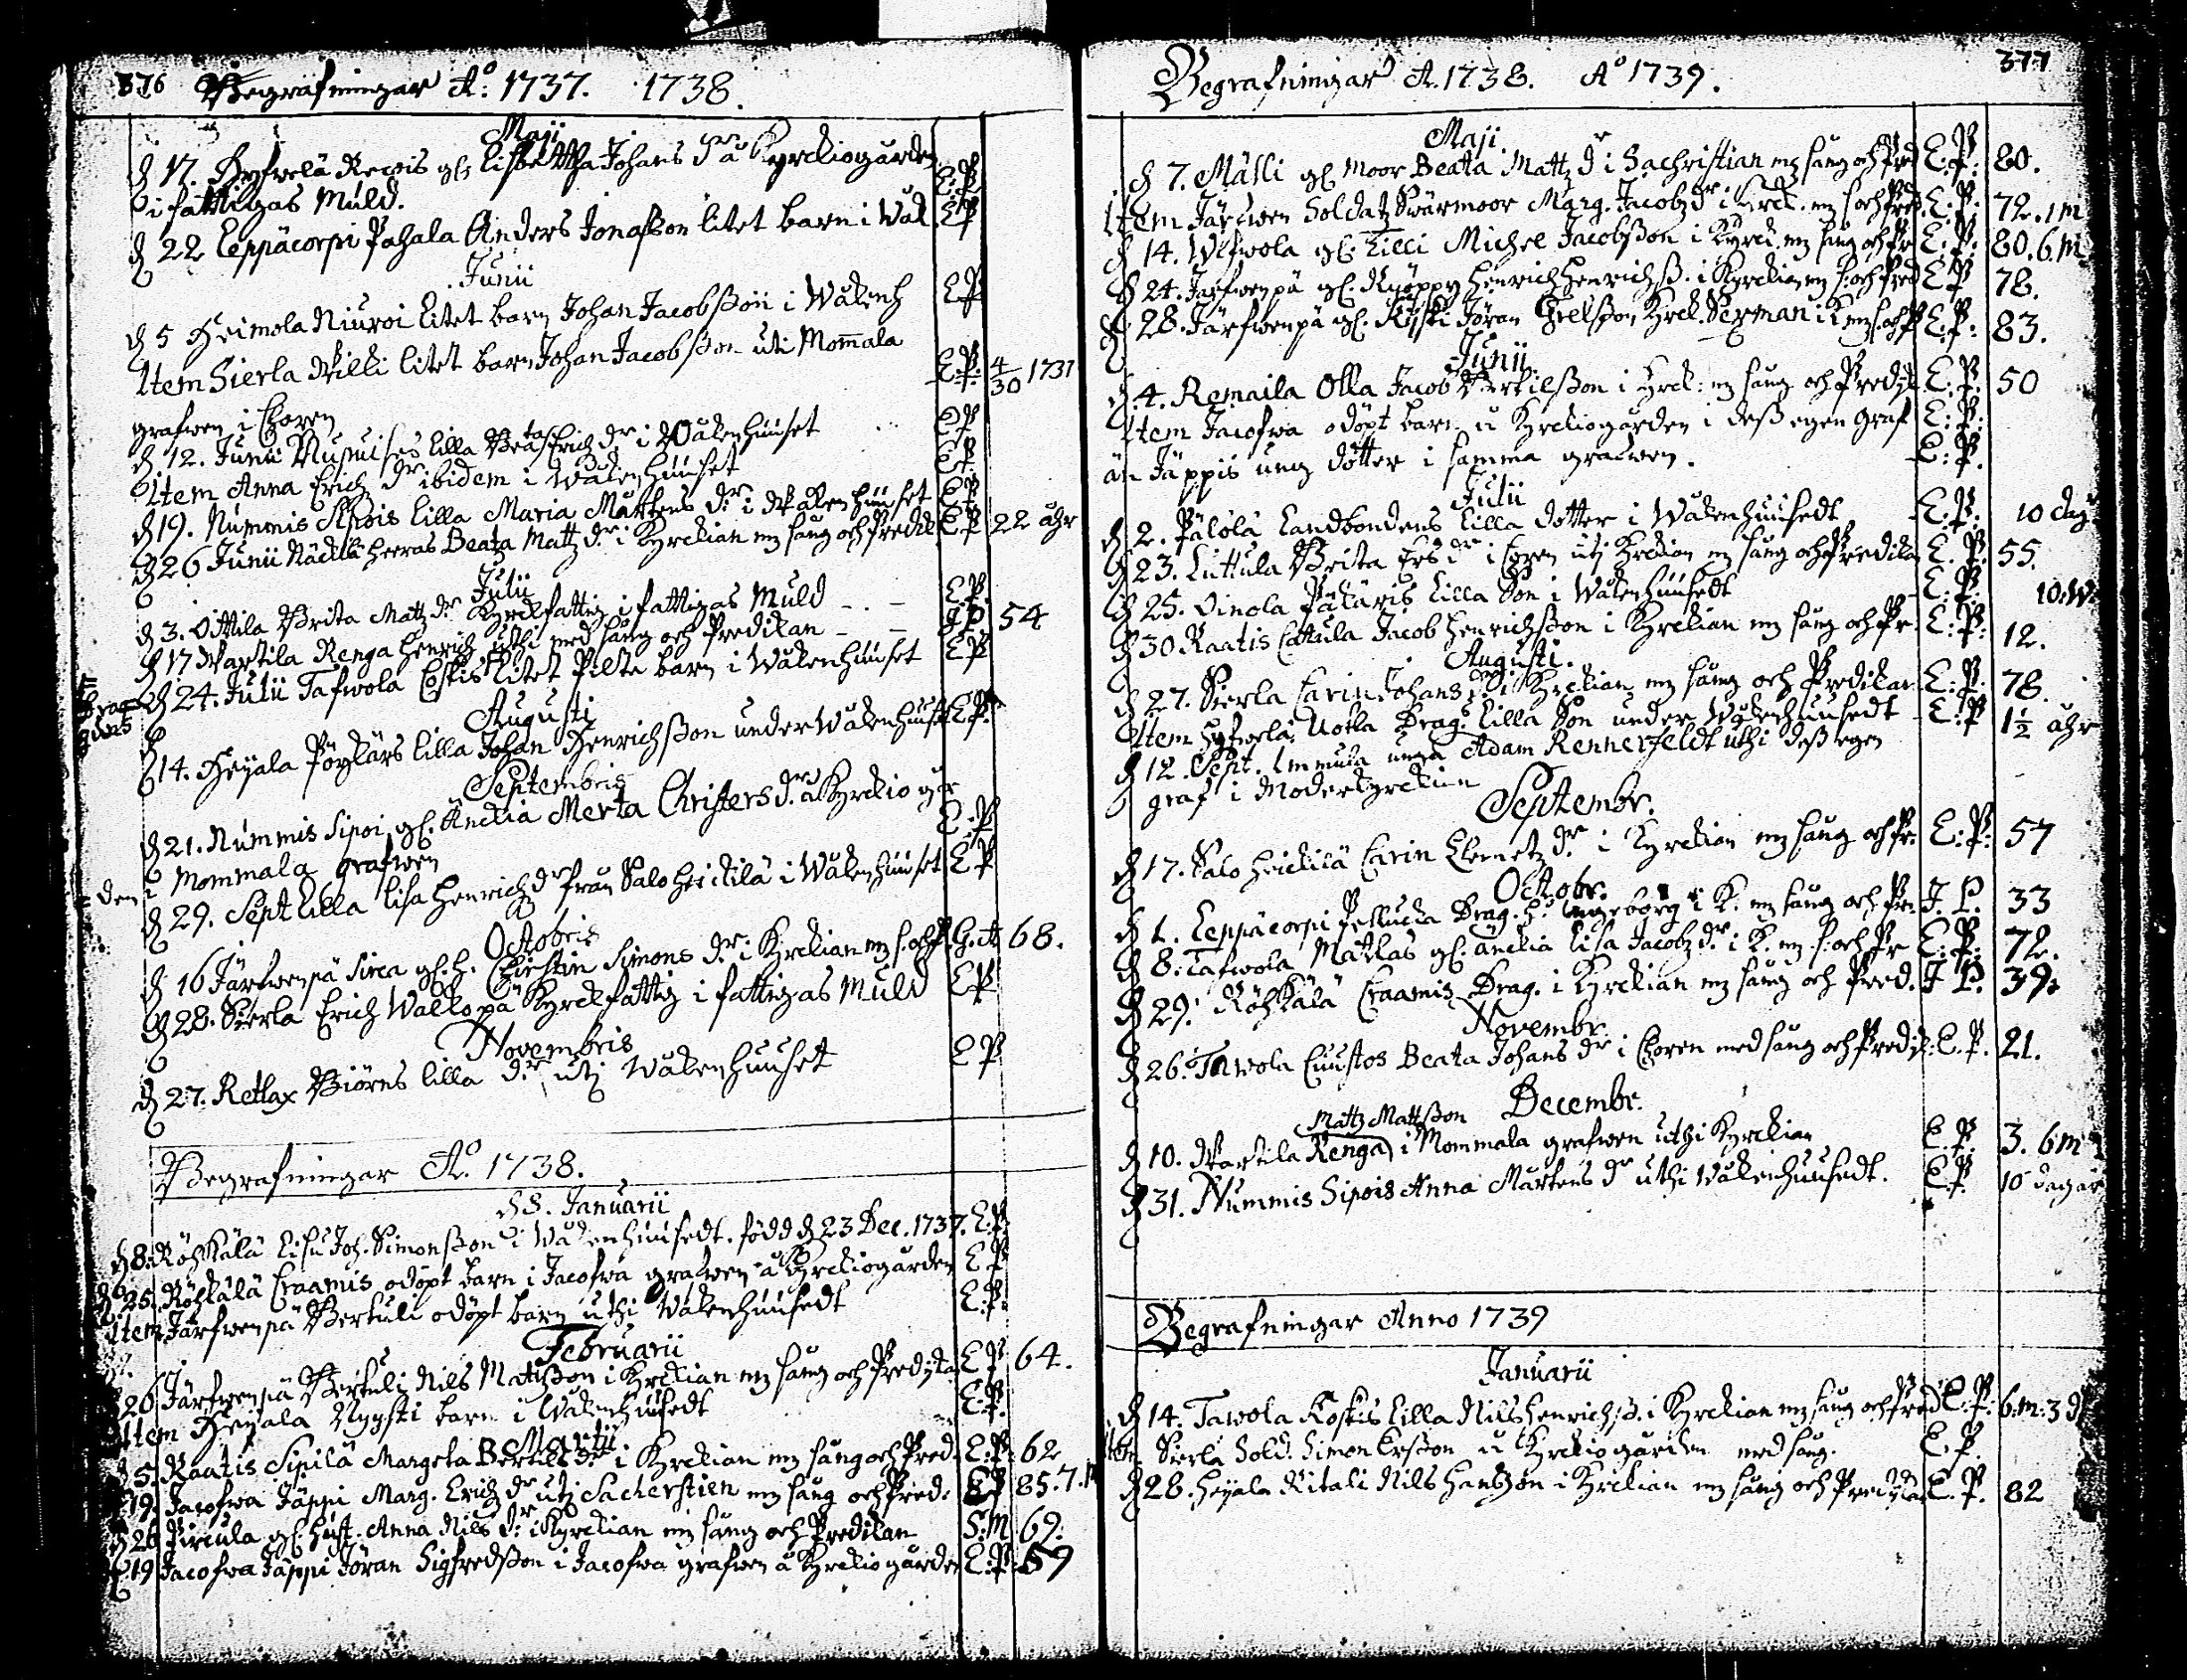 376 Begrafningar A:o 1737. 1738.
Maji
d 17. Hyfwelä Rekois gl. Lisbettha Johans dr å Kyrckiogården
i fattigas Muld. E:P.
d 22 Leppäcorpi Pahala Anders Jonaßon litet barn i Wåk. E P
Junii
d 5 Heimola Niuroi litet barn Johan Jacobßon i Wåkenh E P
Item Sierla Wilki litet barn Johan Jacobßon uti Mom̄ala E.P. 4/30 1731
grafwen i Choren
d 12. Junii lilla Beata Erichz dr i Wåkenhuuset E P
Item Anna Erichz dr ibidem i Wåkenhuuset E P.
d 19. Nummis Sipois lilla Maria Mårtens dr i Wåkenhuuset E P
d 26 Junii Näckilä herras Beata Mattz dr i Kyrckian m sång och Predik E P 22 åhr
Julii
d 3. Vittila Brita Mattz dr Kyrckfattig i fattigas Muld - - E.P.
d 17 Wartila Renga Henrich uthi med sång och Predikan - - J P 54
d 24. Julii Tafwola Coskis litet Pilte barn i Wåkenhuuset E P
Augusti
d 14. Heijala Pöykärs lilla Johan Henrichßon under Wåkenhuuset E.P.
Septembris
d 21. Nummis Sipoi gl. Änckia Merta Christers dr å Kyrckiogår
den i Mommala grafwen E.P
d 29. Sept lilla Lisa Henrichz dr från Salo Heickilä i Wåkenhuuset E P
Octobris
d 16 Järfwenpä Sirca gl. h. Chirstin Simons dr i Kyrckian m s. och P G.A 68.
d 28. Sierla Erich Walko på Kyrckfattig i fattigas Muld E P
Novembris
d 27. Rettax Biörns lilla dr utj Wåkenhuuset E P
Begrafningar A:o 1738.
d 8. Januarii
d 8. Röhkälä Lisu Joh. Simonßon i Wåkenhuusedt. född d 23 Dec. 1737. E.P.
d 25. Röhkälä Craamis odöpt barn i Jacofwa grafwen å Kyrckiogården E P
Item Järfwenpä Bertuli odöpt barn uthi Wåkenhuusedt E.P.
Februarii
26 Järfwenpä Bertuli Nils Matsßon i Kyrckian m sång och Predikan E P 64.
Item Heijala Nygsti barn i Wåkenhuusedt E.P.
Martii
d 5. Raatis Sipilä Margeta Bertils dr i Kyrckian m sång och Pred. E.P. 62
d 19. Jacofwa Jäppi Marg. Erichz dr utj Sacherstien m sång och Pred. E P 85. 7. M
d 26 Pircula gl. hust. Anna Nils dr i Kyrckian m sång och Predikan S:M 69.
d 19 Jacofwa Jäppi Jöran Sigfredßon i Jacofwa grafwen å Kyrckiogården E:P. 59
Begrafningar A. 1738. A:o 1739. 377
Maji.
d 7. Mälli gl. Moor Beata Mattz dr i Sachristian m sång och Pred E:P. 80.
Item Järfwen Soldatz Swärmoor Marg. Jacobz dr i Kyrck. m s. och Pred. E.P. 72. 1 m
d 14. Ulfwola gl. Lilli Michel Jacobßon i Kyrck. m sång och Pr E:P. 80. 6 m
d 24. Järfwenpä gl. Knöppy Henrich Henrichß. i Kyrckian m s. och Pred E P 78.
d 28. Järfwenpä gl. Kyski Jöran Grelßon Kyrck. Sexman i K m s. och P E.P. 83.
Junii.
d. 4. Remaila Olla Jacob Bertilßon i Kyrck: m sång och Predik E.P. 50
Item Jacofwa odöpt barn å Kyrckiogården i deß egen Graf E.P.
än Jäppis ung dotter i samma grafwen. E.P.
Julii
d 2. Pålola Landbondens lilla dotter i Wåkenhuusedt E.P. 10 dag
d 23. Luttula Brita Ers dr i Choren utj Kyrckian m sång och Predikan E.P. 55.
d 25. Vinola Päkäris lilla Son i Wåkenhuusedt E.P. 10. W.
d 30 Raatis Cattula Jacob Henrichßon i Kyrckian m sång och Pr. E:P. 12.
Augusti.
d 27. Sierla Carin Johans dr i Kyrckian m sång och Predikan E.P. 78
Item Hyfwelä Uotla Drag. lilla Son under Wåkenhuusedt E.P 1½ åhr
d 12. Sept. Immula unga Adam Rennerfeldt uthi deß egen
graf i Moderkyrckian
Septembr.
d 17. Salo Heickilä Carin Clemetz dr i Kyrckian m sång och Pr. E.P. 57
Octobr.
d 1. Leppäcorpi Pellucka Drag. h. Ingeborg i K. m sång och Pr. J.P. 33
d 8. Tafwola Matkas gl. Änckia Lisa Jacobz dr i K. m. s. och Pr E.P. 72.
d 29. Röhkälä Craamis Drag. i Kyrckian m sång och Pred. J P. 39.
Novembr.
d 26. Tawola Cuustos Beata Johans dr i Choren med sång och Predik. E.P. 21.
Decembr.
Mattz Mattßon
d 10. Wartila Renga i Mommala grafwen uthi Kyrckian E.P. 3. 6 m
d 31. Nummis Sipois Anna Mårtens dr uthi Wåkenhuusedt. E.P. 10 dagar
Begrafningar Anno 1739
Januarii
d 14. Tawola Koskis lilla Nils Henrichß. i Kyrckian m sång och Pred E.P. 6. m. 3 d
Item Sierla Sold. Simon Erßon å Kyrckiogården med sång. E.P.
d 28. Heijala Kitali Nils Hanßon i Kyrckian m sång och Predikan E.P. 82